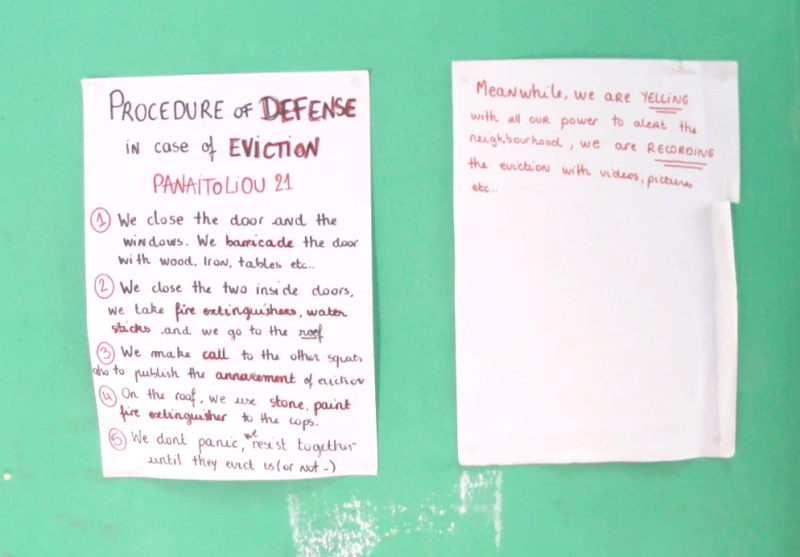 PROCEDURE OF DEFENSE
in case of EVICTION
PANAITOLIOU 21
1 We close the door and the
windows. We barricade the door
with wood, Iron, tables etc..
2 We close the two inside doors,
we take fire extinguishers, water
sticks and we go to the roof
3 We make call to the other squats
to publish the of eviction
4 On the roof, we use stone, paint
fire extinguisher to the cops.
5 We dont panic, we resist together
until they evict us (or not -)
Meanwhile, we are YELLING
with all our power to alert the
neighbourhood, we are RECORDING
the eviction with videos, pictures
etc..